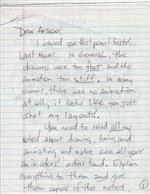 Dear Artist:
I loved your first pencil tests
last year. In general, the
drawings were too that and the
animation too stiff. In many
scenes, there was no animation
at all, it looks like you just
shot my layouts.
You need to read all my
notes about drawing, timing and
animating and make sure all your
animators understand. Explain
everything to them and give
them copies of the notes.
1